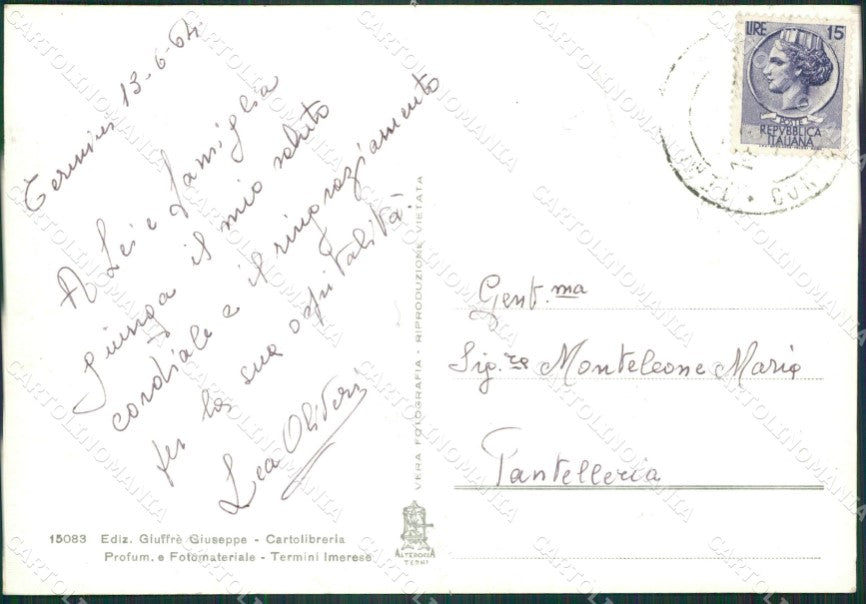 Termini 13-6-64
A Lei e famiglia
giunga il mio saluto
cordiale e il ringraziamento
per la sua ospitalità.
Lea Oliveri
LIRE 15
POSTE
REPVBBLICA
ITALIANA
Gent.ma
Sig.ra Monteleone Maria
Pantelleria
VERA FOTOGRAFIA - RIPRODUZIONE VIETATA
15083 Ediz. Giuffrè Giuseppe - Cartolibreria
Profum. e Fotomateriale - Termini Imerese
ALTEROCCA
TERNI
CARTOLINOMANIA